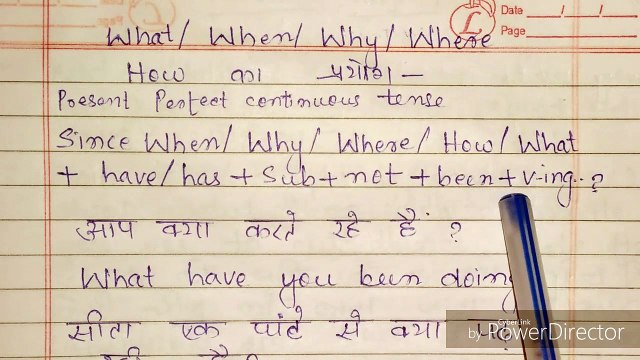 Date / /
Page
What/ When/ Why/ Where
How का प्रयोग –
Present Perfect continuous tense
Since When/ Why/ Where/ How/ What
+ have/has + Sub + not + been + v-ing..?
आप क्या करते रहे हैं ?
What have you been doing
सीता एक घंटे से क्या
by CyberLink PowerDirector